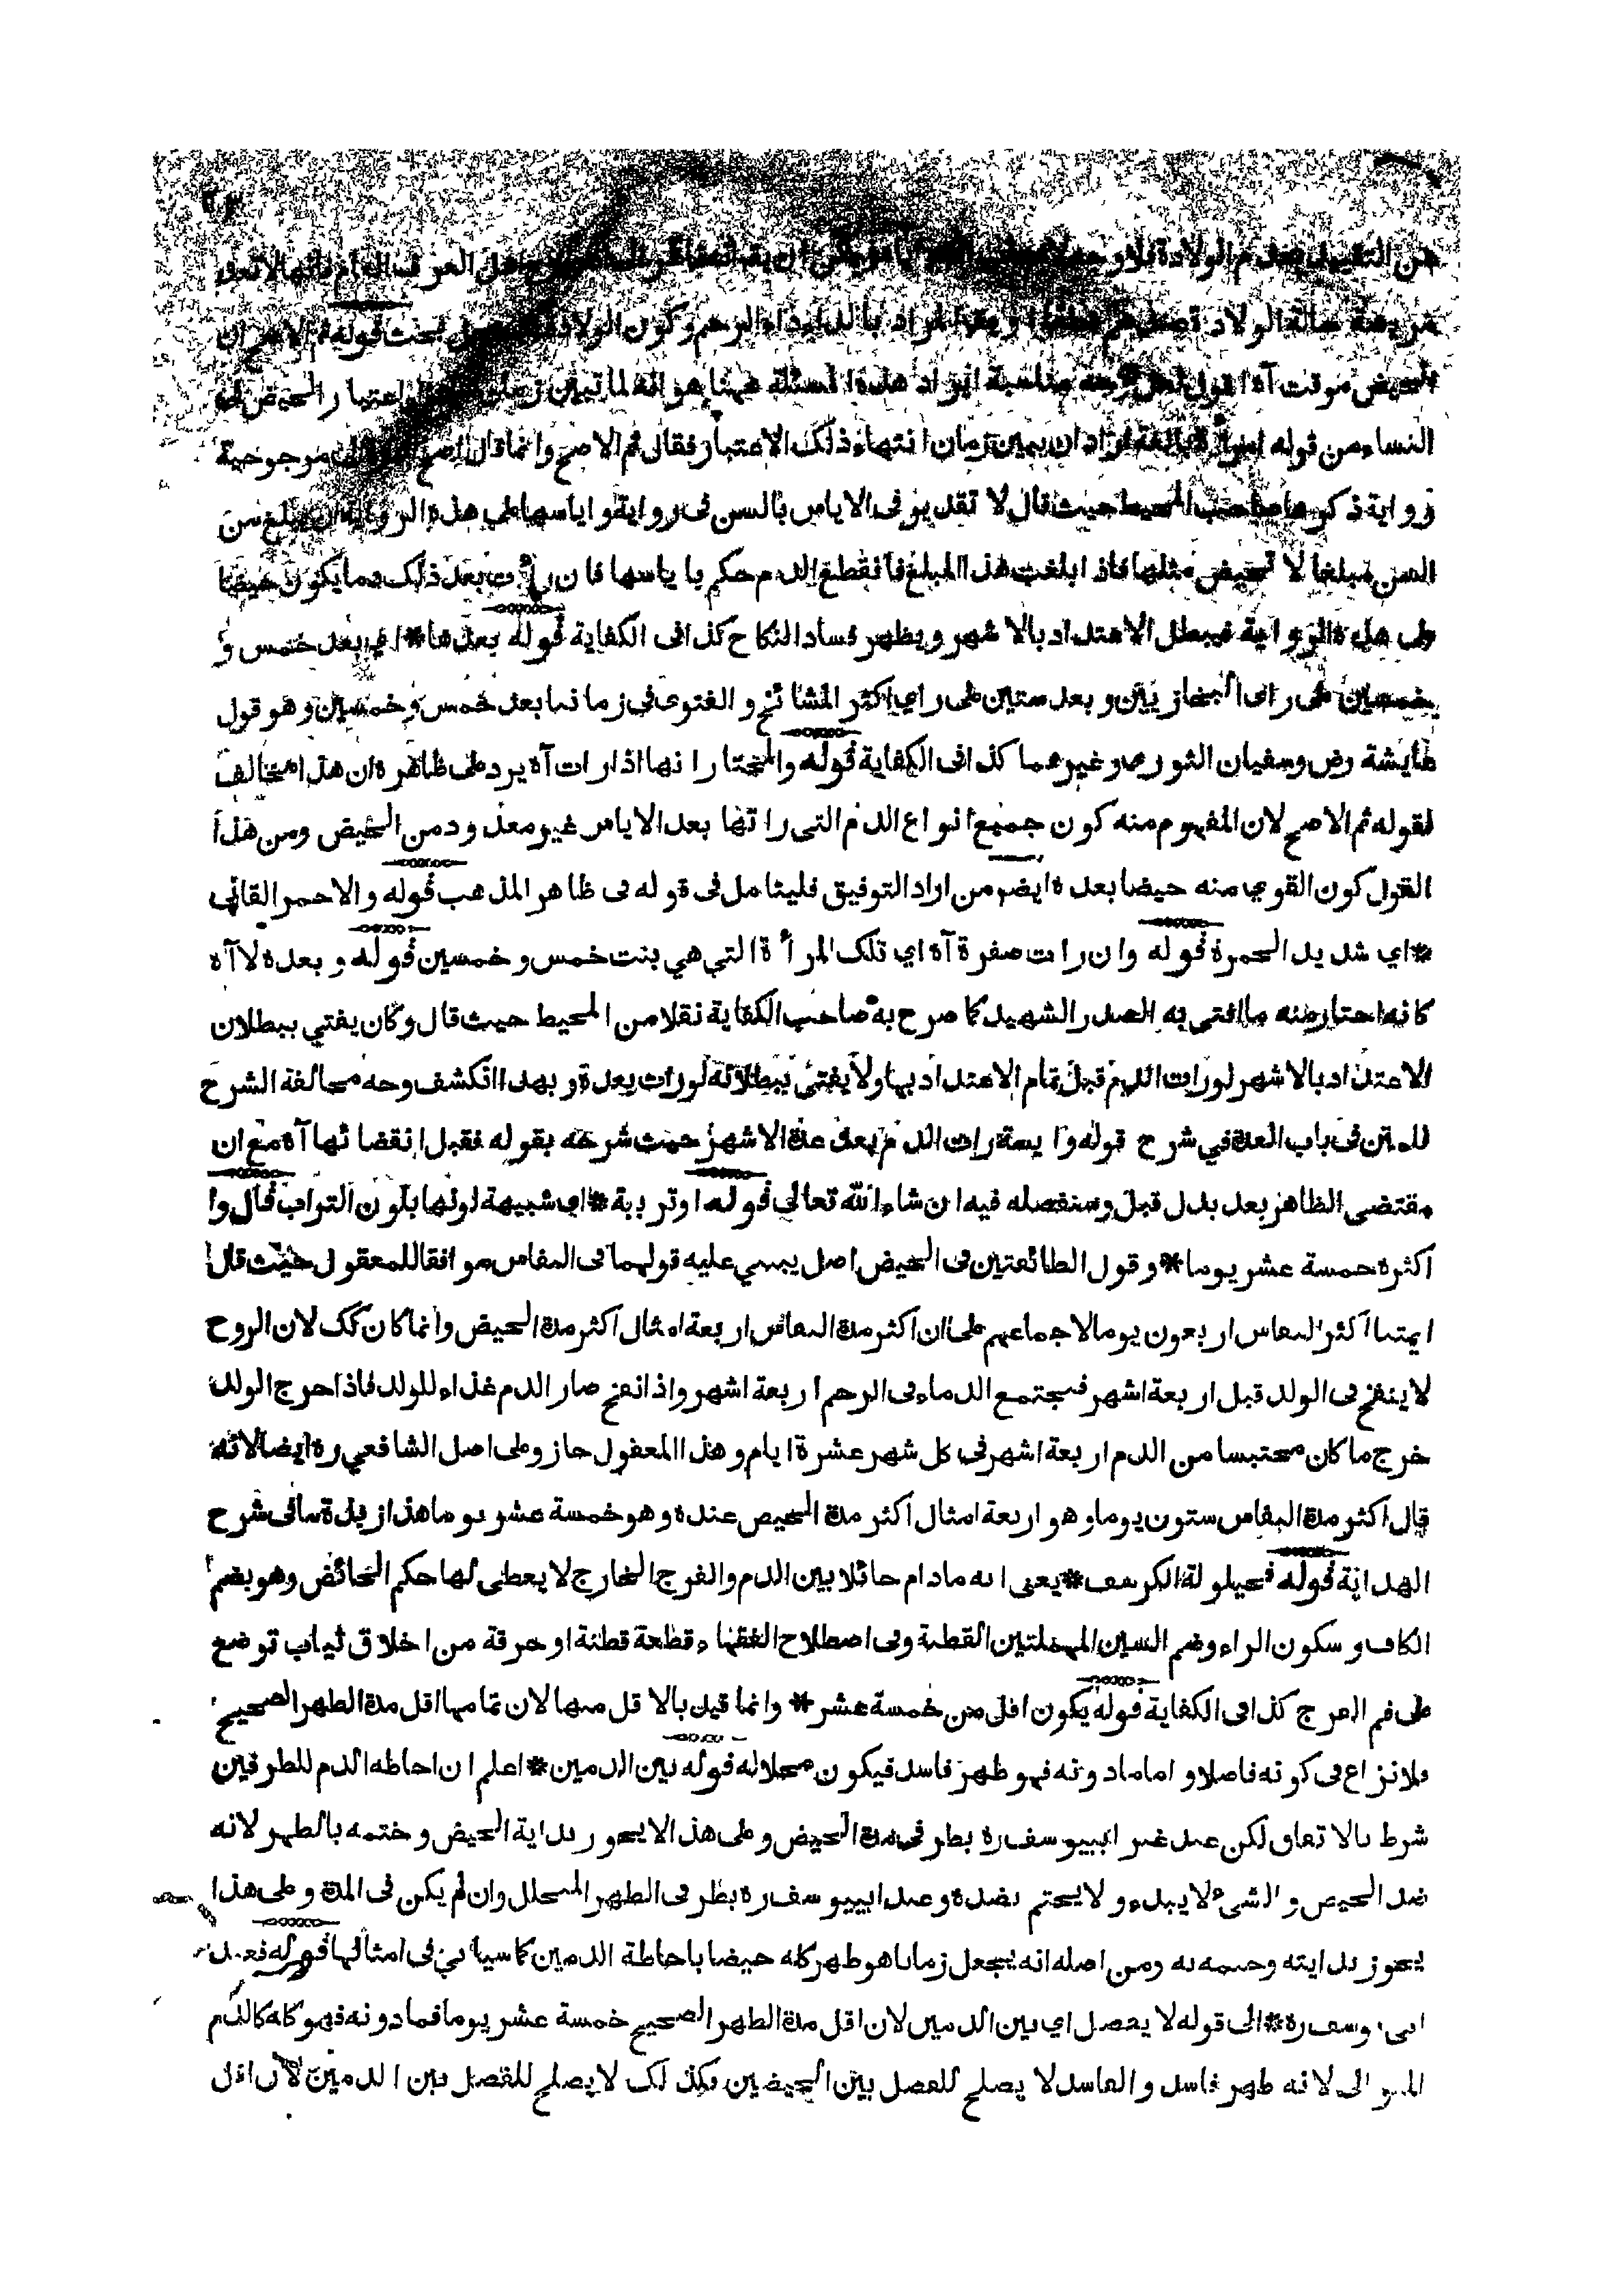 عن التقييد بعدم الولادة فلا وجه
مريضة حالة الولاد المراد بالداء داء الرحم وكون الولادة بحث قوله ثم الاصح ان
الحيض موقت آه اقول لعل وجه مناسبة ايراد هذه المسئلة ههنا هو انه لما تبين اعتبار الحيض في
النساء من قوله امرأة بالغة اراد ان يبين زمان انتهاء ذلك الاعتبار فقال ثم الاصح وانما قال الاصح موجوحية
رواية ذكرها صاحب المحيط حيث قال لا تقدير في الاياس بالسن في رواية واياسها على هذه الرواية ان يبلغ من
السن مبلغا لا تحيض مثلها فاذا بلغت هذا المبلغ فانقطع الدم حكم باياسها فان رأت بعد ذلك دما يكون حيضا
على هذه الرواية فيبطل الاعتداد بالاشهر ويظهر فساد النكاح كذا في الكفاية قوله بعدها * اي بعد خمس و
خمسين على راى البخاريين وبعد ستين على راي اكثر المشائخ والفتوى في زماننا بعد خمس وخمسين وهو قول
عايشة رض وسفيان الثوري وغيرهما كذا في الكفاية قوله والمختار انها اذا رات آه يرد على ظاهره ان هذا مخالف
لقوله ثم الاصح لان المفهوم منه كون جميع انواع الدم التي راتها بعد الاياس غير معدود من الحيض ومن هذا
القول كون القوي منه حيضا بعده ايضا من اراد التوفيق فليتامل في قوله في ظاهر المذهب قوله والاحمر القاني
* اي شديد الحمرة قوله وان رات صفرة آه اي تلك المرأة التي هي بنت خمس وخمسين قوله وبعده لا آه
كانه اختار منه ما افتى به الصدر الشهيد كما صرح به صاحب الكفاية نقلا من المحيط حيث قال وكان يفتي ببطلان
الاعتداد بالاشهر لو رات الدم قبل تمام الاعتداد بها ولا يفتي ببطلانه لو رات بعده وبهذا انكشف وجه مخالفة الشرح
للمتن في باب العدة في شرح قوله وآيسة رات الدم بعد عدة الاشهر حيث شرحه بقوله فقبل انقضائها آه مع ان
مقتضى الظاهر بعد بدل قبل وسنفصله فيه ان شاء الله تعالى قوله او تربية * اي شبيهة لونها بلون التراب قال وا
كثره خمسة عشر يوما * وقول الطائفتين في الحيض اصل يبتني عليه قولهما في النفاس موافقا للمعقول حيث قال
ايمتنا اكثر النفاس اربعون يوما لاجماعهم على ان اكثر مدة النفاس اربعة امثال اكثر مدة الحيض وانما كان كك لان الروح
لا ينفخ في الولد قبل اربعة اشهر فيجتمع الدماء في الرحم اربعة اشهر واذا نفخ صار الدم غذاء للولد فاذا خرج الولد
خرج ما كان محتبسا من الدم اربعة اشهر في كل شهر عشرة ايام وهذا المعقول جاز وعلى اصل الشافعي ره ايضا لانه
قال اكثر مدة النفاس ستون يوما وهو اربعة امثال اكثر مدة الحيض عنده وهو خمسة عشر يوما هذا زبدة ما في شرح
الهداية قوله فحيلولة الكرسف * يعني انه مادام حائلا بين الدم والفرج الخارج لا يعطى لها حكم الحائض وهو بضم
الكاف وسكون الراء وضم السين المهملتين القطنة وفى اصطلاح الفقهاء قطعة قطنة او خرقة من اخلاق ثياب توضع
على فم الفرج كذا في الكفاية قوله يكون اقل من خمسة عشر * وانما قيل بالاقل منها لان تمامها اقل مدة الطهر الصحيح
فلا نزاع في كونه فاصلا واما مادونه فهو طهر فاسد فيكون محلالة قوله بين الدمين * اعلم ان احاطه الدم للطرفين
شرط بالاتفاق لكن عند غير ابييوسف ره بطر في مدة الحيض وعلى هذا لا يجوز بداية الحيض وختمه بالطهر لانه
ضد الحيض والشيء لا يبدء ولا يختم بضده وعند ابييوسف ره بطر في الطهر المتخلل وان لم يكن في المدة وعلى هذا
يجوز بدايته وختمه به ومن اصله انه يجعل زمانا هو طهر كله حيضا باحاطة الدمين كما سيأتي في امثالها قوله فعند
ابي يوسف ره * الى قوله لا يفصل اي بين الدمين لان اقل مدة الطهر الصحيح خمسة عشر يوما فما دونه فهو كله كالدم
المتوالي لانه طهر فاسد والفاسد لا يصلح للفصل بين الحيضين فكذلك لا يصلح للفصل بين الدمين لان اقل